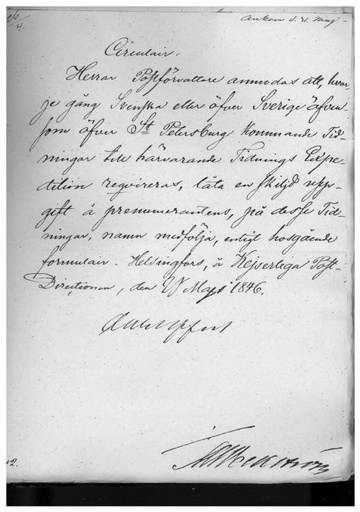 Ankom d. 21 Maj
Circulair.
Herrar Postförvaltare anmodas att, hvar-
je gång Svenska eller öfver Sverige äfven-
som öfver St. Petersburg kommande Tid-
ningar till härvarande Tidnings Expe-
dition reqvireras, låta en skiljd upp-
gift å prenumerantens, på desse Tid-
ningar, namn medfölja, enligt hosgående
formulair. Helsingfors, å Kejserliga Post-
Directionen, den Maj 1846.